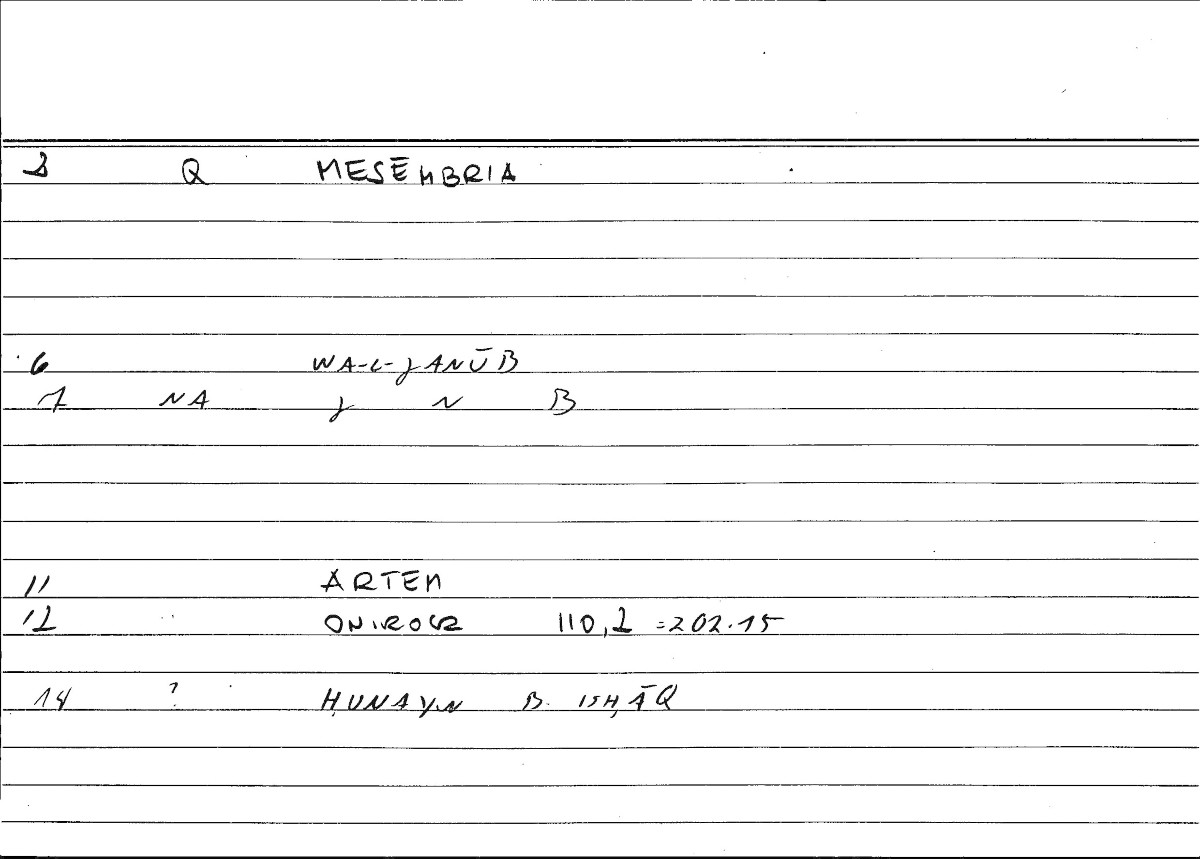 2 Q MESĒMBRIA
6 WA-L-JANŪB
7 NA J N B
11 ARTEM
12 ONIROCR 110,2 =202.15
14 ? ḤUNAYN B. ISḤĀQ